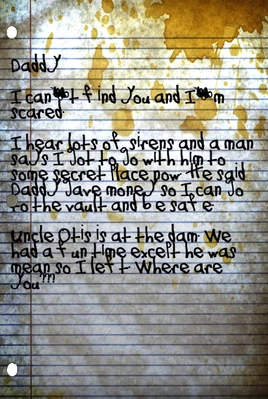 Daddy
I can't find you and I'm
scared.
I hear lots of sirens and a man
says I got to go with him to
some secret place now He said
Daddy gave money so I can go
ro the vault and be safe
Uncle Otis is at the dam. We
had a fun time except he was
mean so I left. Where are
you???